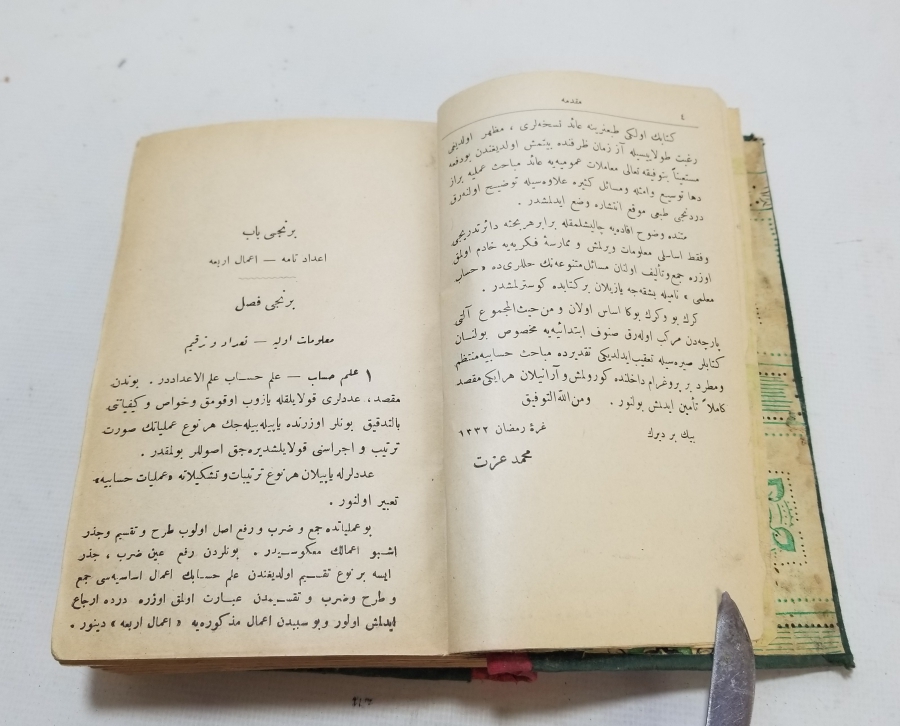 مقدمه
٤
كتابك اولكی طبعنرینه عائد نسخه‌لری ، مظهر اولدیغی
رغبت طولاییسیله آز زمان ظرفنده بیتمش اولدیغندن بودفعه
مستعیناً بتوفیقه تعالی معاملات عمومیه‌یه عائد مباحث عملیه براز
دها توسیع وامثله ومسائل كثیره علاوه‌سیله توضیح اولنه‌رق
دردنجی طبعی موقع انتشاره وضع ایدلمشدر .
متنده وضوح افاده‌یه چالیشلمقله برابر هر بحثه دائر تدریجی
وفقط اساسلی معلومات ویرلمش و ممارسهٔ فكریه‌یه خادم اولمق
اوزره جمع وتألیف اولنان مسائل متنوعه‌نك حللری ده « حساب
معلمی » نامیله بشقه‌جه یازیلان بر كتابده كوسترلمشدر .
كرك بو وكرك بوكا اساس اولان و من حیث المجموع آلتی
پارچه‌دن مركب اوله‌رق صنوف ابتدائیه‌یه مخصوص بولنسان
كتابلر صیره‌سیله تعقیب ایدلدیكی تقدیرده مباحث حسابیه منتظم
ومطرد بر پروغرام داخلنده كورولمش و آرانیلان هر ایكی مقصد
كاملاً تأمین ایدلمش بولنور . ومن الله التوفیق
بیك بر دیرك
غرهٔ رمضان ١٣٣٢
محمد عزت
برنجی باب
اعداد تامه — اعمال اربعه
برنجی فصل
معلومات اولیه — تعداد و ترقیم
١ علم حساب — علم حساب علم الاعداددر . بوندن
مقصد ، عددلری قولایلقله یازوب اوقومق وخواص و كیفیاتنی
بالتدقیق بونلر اوزرنده یاپیله‌بیله‌جك هر نوع عملیاتك صورت
ترتیب و اجراسنی قولایلشدیره‌جق اصوللر بولمقدر .
عددلرله یاپیلان هر نوع ترتیبات و تشكیلاته «عملیات حسابیه»
تعبیر اولنور .
بو عملیاتده جمع و ضرب و رفع اصل اولوب طرح و تقسیم وجذر
اشبو اعمالك معكوسیدر . بونلردن رفع عین ضرب ، جذر
ایسه بر نوع تقسیم اولدیغندن علم حسابك اعمال اساسیه‌سی جمع
و طرح وضرب و تقسیمدن عبارت اولمق اوزره درده ارجاع
ایدلمش اولور وبو سببدن اعمال مذكوره‌یه « اعمال اربعه » دینور .